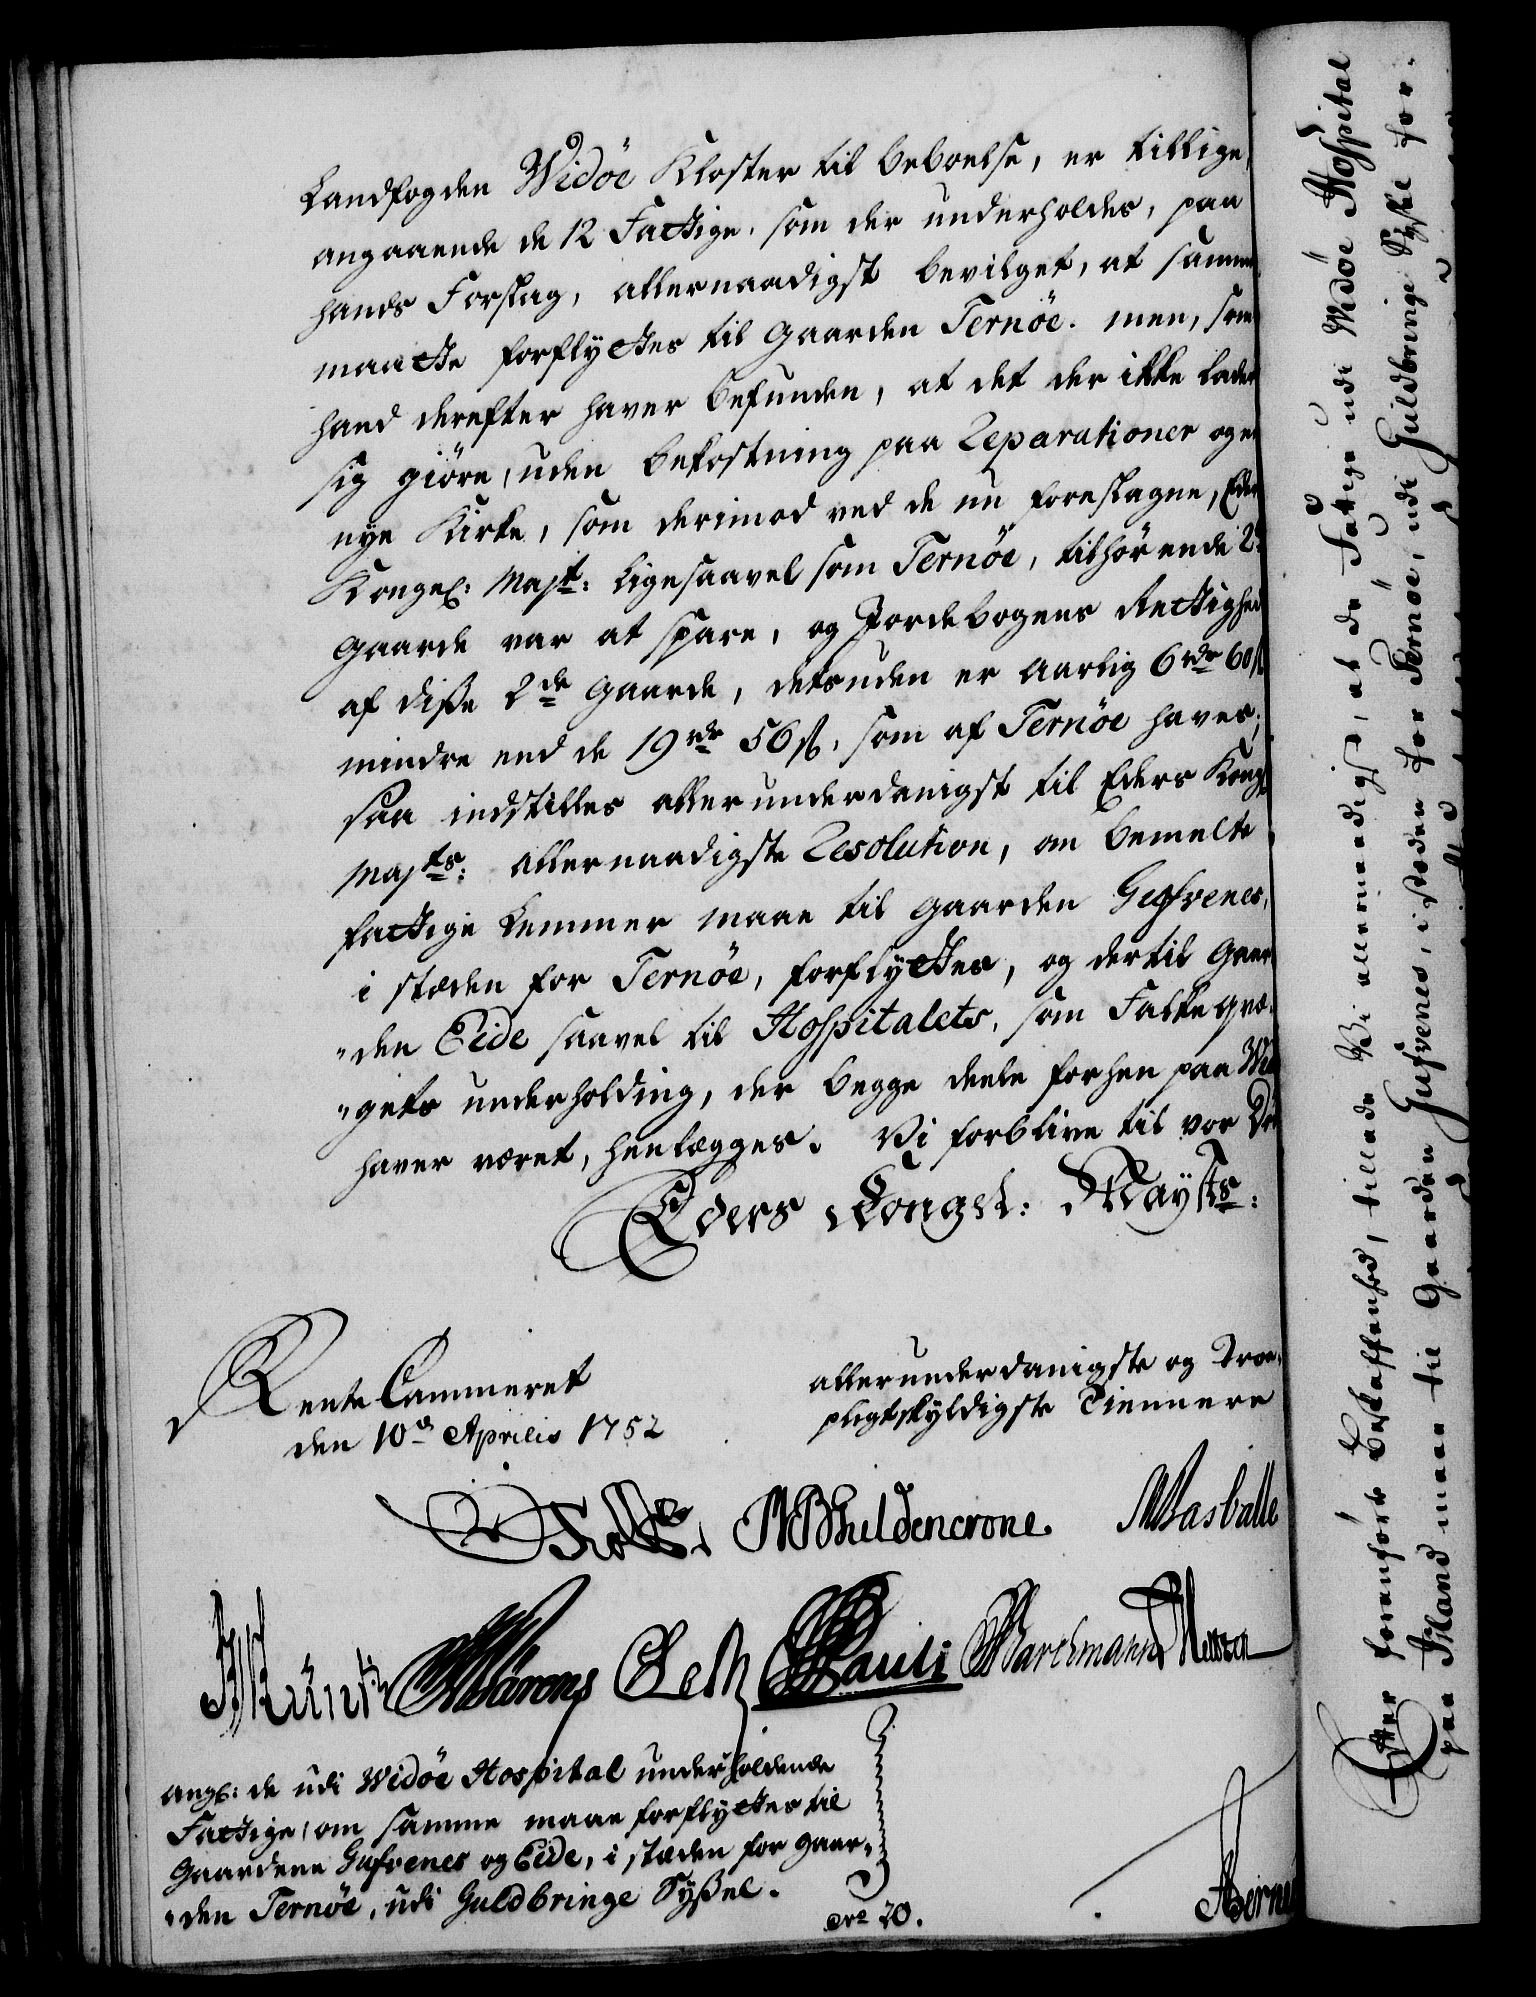 Landfogden Widöe Kloster til beboelse, er tillige
angaaende de 12 Fattige, som der underholdes, paa
hands Forslag, allernaadigst bevilget, at samme
maatte forflyttes til Gaarden Ternöe. men, som
hand derefter haver befunden, at det der ikke lader
sig giöre, uden bekostning paa Reparationer og en
nye Kirke, som derimod ved de nu foreslagne, Eders
Kongel: Majt: ligesaavel som Ternöe, tilhörende 2de
Gaarde var at spare, og Jordebogens Rettighed
af disse 2de Gaarde, desuden er aarlig 6 rdr 60 s
mindre end de 19 rdr 56 s, som af Ternöe haves;
saa indstilles allerunderdanigst til Eders Kongl
Majts: allernaadigste Resolution, om bemelte
fattige Lemmer maae til Gaarden Gufvenes,
i stæden for Ternöe, forflyttes, og dertil Gaar
"den Eide saavel til Hospitalets, som Falke qvæ-
"gets underholding, der begge deele forhen paa Wid
haver været, henlægges. Vi forblive til vor Död
Eders Kongel: Mayts:
Rente Cammeret
den 10de Aprilis 1752
allerunderdanigste og Troe-
pligtskyldigste Tiennere
Holstein MBGuldencrone. Masballe
Pauli Barchmann
angl: de udi Widöe Hospital underholdende
Fattige, om samme maae forflyttes til
Gaardene Gufvenes og Eide, i stæden for Gaar-
"den Ternöe, udi Guldbringe Syssel.
No 20.
Efter foranförte Beskaffenhed, tillade Vi allernaadigst, at de Fattige udi Widöe Hospital
paa Island maae til Gaarden Gufvenes, i stæden for Ternöe, udi Guldbringe Sysle for-